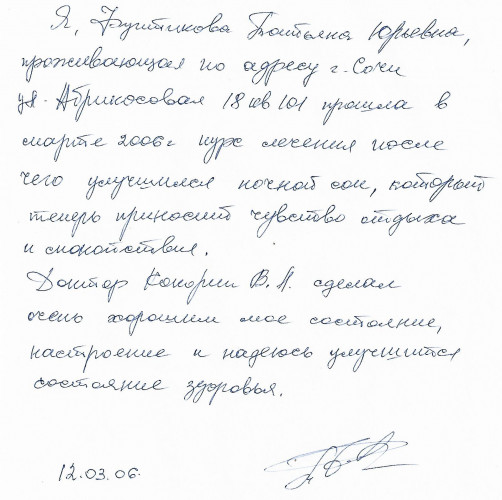 Я, Фунтикова Татьяна Юрьевна,
проживающая по адресу г. Сочи
ул. Абрикосовая 18 кв 101 прошла в
марте 2006г курс лечения после
чего улучшился ночной сон, который
теперь приносит чувство отдыха
и спокойствия.
Доктор Конорин В. А. сделал
очень хорошим мое состояние,
настроение и надеюсь улучшится
состояние здоровья.
12.03.06.